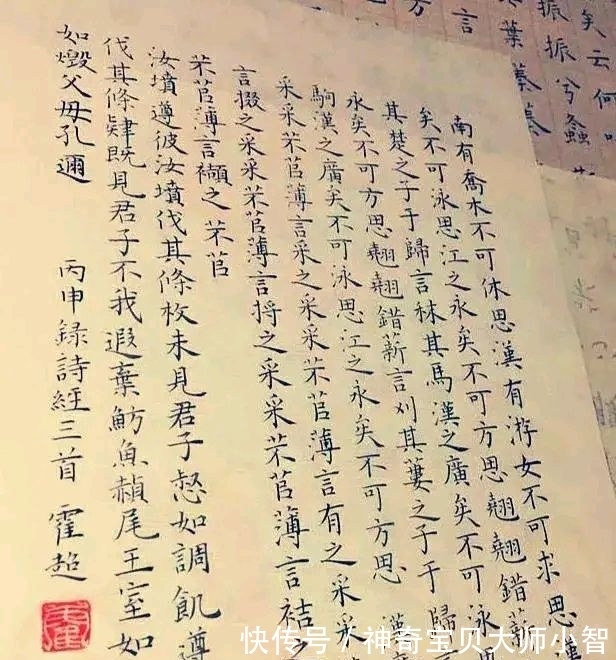 矣云何
振振兮螽
言
葉蓁蓁
南有喬木不可休思漢有游女不可求思
矣不可泳思江之永矣不可方思翹翹錯薪
其楚之子于歸言秣其馬漢之廣矣不可泳
永矣不可方思翹翹錯薪言刈其蔞之子于歸
駒漢之廣矣不可泳思江之永矣不可方思 漢
采采芣苢薄言采之采采芣苢薄言有之采采
言掇之采采芣苢薄言捋之采采芣苢薄言袺之
芣苢薄言襭之 芣苢
汝墳遵彼汝墳伐其條枚未見君子惄如調飢遵
伐其條肄既見君子不我遐棄魴魚赬尾王室如
如燬父母孔邇 丙申録詩經三首 霍超
快传号/神奇宝贝大师小智